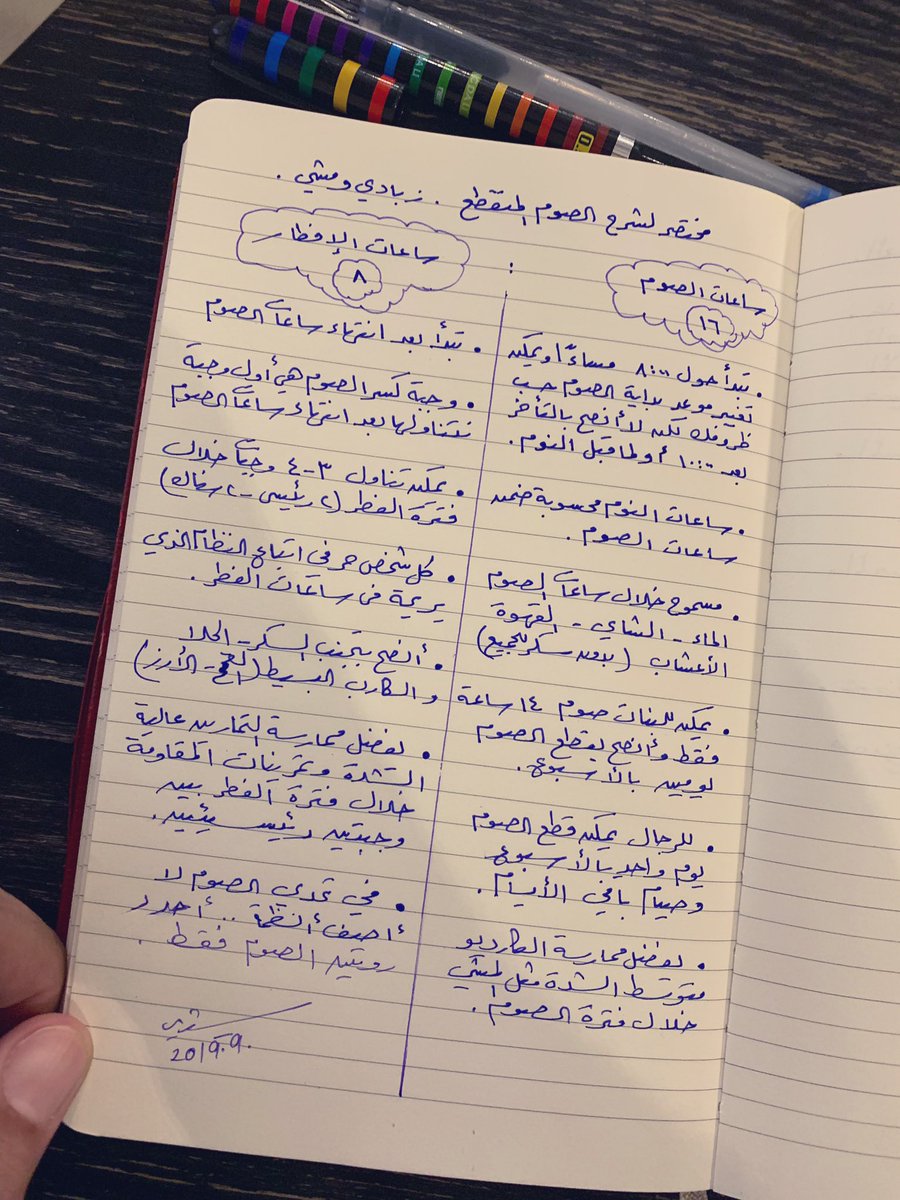 مختصر لشرح الصوم المتقطع . زبادي ومشي .
ساعات الصوم
١٦
• تبدأ حول ٨:٠٠ مساءً أو يمكن
تغيير موعد بداية الصوم حسب
ظروفك لكن لا أنصح بالتأخر
بعد ١٠:٠٠ أو لما قبل النوم .
• ساعات النوم محسوبة ضمن
ساعات الصوم .
• مسموح خلال ساعات الصوم
الماء - الشاي - القهوة
الأعشاب (بدون سكر للجميع)
• يمكن للبنات صوم ١٤ ساعة
فقط وأنصح بقطع الصوم
يومين بالأسبوع .
• للرجال يمكن قطع الصوم
يوم واحد بالأسبوع
وصيام باقي الأيام .
• يفضل ممارسة الكارديو
متوسط الشدة مثل المشي
خلال فترة الصوم .
ساعات الإفطار
٨
• تبدأ بعد انتهاء ساعات الصوم
• وجبة كسر الصوم هي أول وجبة
نتناولها بعد انتهاء ساعات الصوم
• يمكن تناول ٣-٤ وجبات خلال
فترة الفطر (٢ رئيسي - ٢ سناك)
• كل شخص حر في اتباع النظام الذي
يريحه في ساعات الفطر .
• أنصح بتجنب السكر - الحلا
والكارب البسيط ( - الأرز)
• يفضل ممارسة التمارين عالية
الشدة وتمرينات المقاومة
خلال فترة الفطر بين
وجبتين رئيسيتين .
• في تحدي الصوم لا
أضيف أنظمة .. أحدد
روتين الصوم فقط .
2019.9.